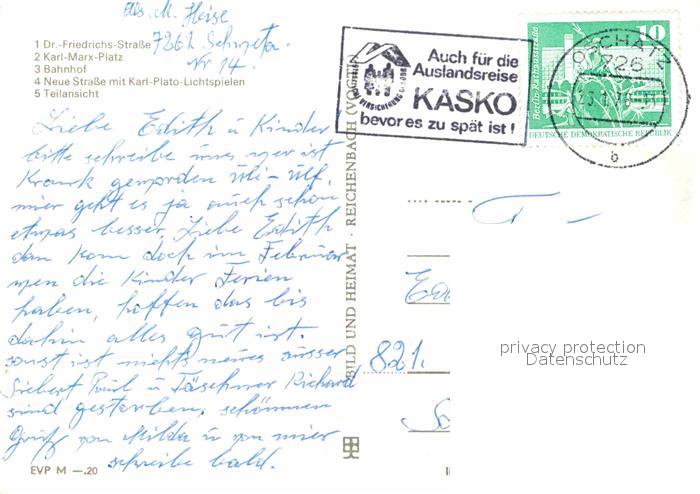 Abs. M. Heise
7261 Schweta
Nr 14
1 Dr.-Friedrichs-Straße
2 Karl-Marx-Platz
3 Bahnhof
4 Neue Straße mit Karl-Plato-Lichtspielen
5 Teilansicht
Auch für die
Auslandsreise
KASKO
bevor es zu spät ist!
OSCHATZ
726
b
10
Berlin: Rathausstraße
DEUTSCHE DEMOKRATISCHE REPUBLIK
Liebe Edith u Kinder
bitte schreibe uns wer ist
Krank geworden Uli-Ulf,
mier geht es ja auch schon
etwas besser, Liebe Edith
dan kom doch im Februar
wen die Kinder Ferien
haben, hoffen das bis
dahin alles gut ist.
sonst ist nichts neues ausser
Siebert Paul u Täschner Richard
sind gestorben, schönnen
Gruß von Milda u von mier
schreibe bald.
BILD UND HEIMAT · REICHENBACH VOGTL
821.
privacy protection
Datenschutz
EVP M —.20